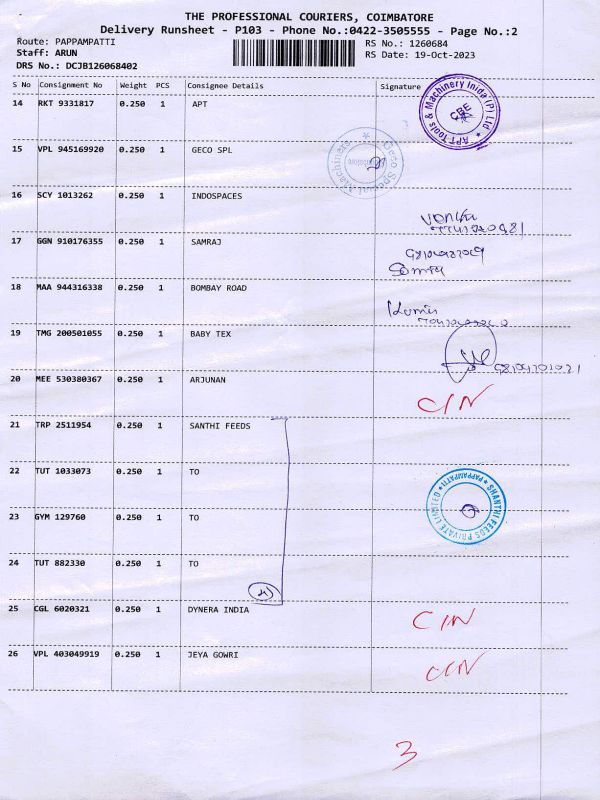 THE PROFESSIONAL COURIERS, COIMBATORE
Delivery Runsheet - P103 - Phone No.:0422-3505555 - Page No.:2
Route: PAPPAMPATTI RS No.: 1260684
Staff: ARUN RS Date: 19-Oct-2023
DRS No.: DCJB126068402
S No Consignment No Weight PCS Consignee Details Signature
14 RKT 9331817 0.250 1 APT
APT Tools & Machinery Inida (P) Ltd
CBE
15 VPL 945169920 0.250 1 GECO SPL
Geco Special Machinery
16 SCY 1013262 0.250 1 INDOSPACES
17 GGN 910176355 0.250 1 SAMRAJ
18 MAA 944316338 0.250 1 BOMBAY ROAD
19 TMG 200501055 0.250 1 BABY TEX
20 MEE 530380367 0.250 1 ARJUNAN
CIN
21 TRP 2511954 0.250 1 SANTHI FEEDS
22 TUT 1033073 0.250 1 TO
SHANTHI FEEDS PRIVATE LIMITED
PAPPAMPATTI
23 GYM 129760 0.250 1 TO
24 TUT 882330 0.250 1 TO
25 CGL 6020321 0.250 1 DYNERA INDIA CIN
26 VPL 403049919 0.250 1 JEYA GOWRI CIN
3